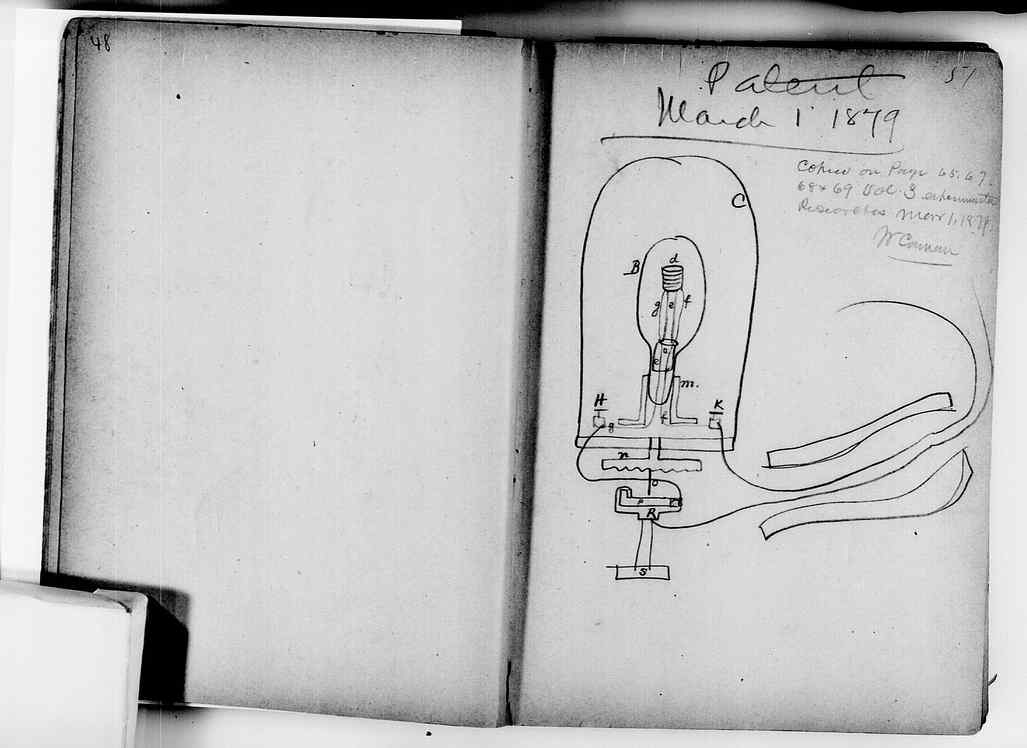 48
51
Patent
March 1 1879
Copied on Page 65. 67.
68 & 69 Vol. 3 experimental
Researches March 1, 1879.
C
B
d
g e f
a
c
m.
H
K
g
f
n
o
P
R
S